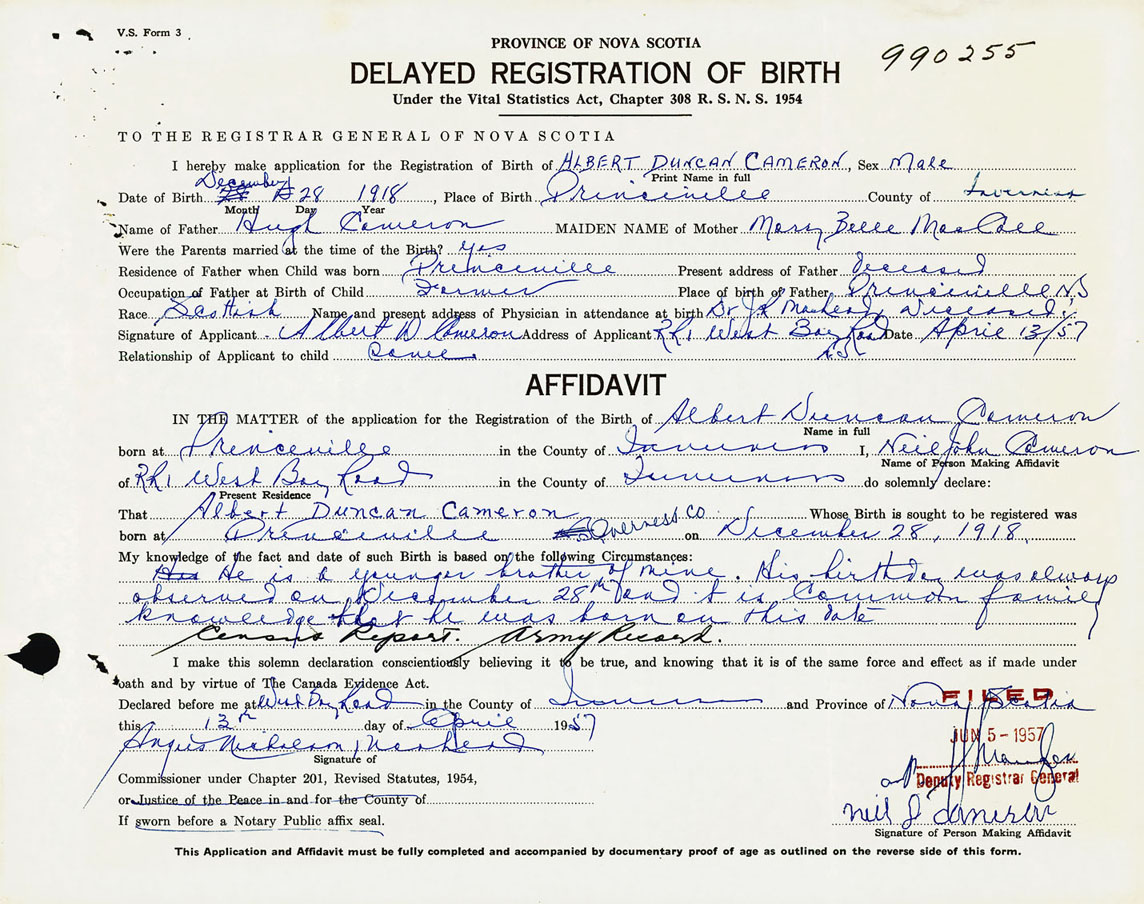 V.S. Form 3
PROVINCE OF NOVA SCOTIA
990255
DELAYED REGISTRATION OF BIRTH
Under the Vital Statistics Act, Chapter 308 R. S. N. S. 1954
TO THE REGISTRAR GENERAL OF NOVA SCOTIA
I hereby make application for the Registration of Birth of ALBERT DUNCAN CAMERON, Sex Male
Print Name in full
Date of Birth December 28 1918, Place of Birth Princeville County of Inverness
Month Day Year
Name of Father Hugh Cameron MAIDEN NAME of Mother Mary Belle
Were the Parents married at the time of the Birth? yes
Residence of Father when Child was born Princeville Present address of Father deceased
Occupation of Father at Birth of Child Farmer Place of birth of Father Princeville N.S
Race Scottish Name and present address of Physician in attendance at birth Dr J.R. Deceased
Signature of Applicant Albert D Cameron Address of Applicant RR1 West Bay Road Date April 13/57
N.S.
Relationship of Applicant to child
AFFIDAVIT
IN THE MATTER of the application for the Registration of the Birth of Albert Duncan Cameron
Name in full
born at Princeville in the County of Inverness I, Neil John Cameron
Name of Person Making Affidavit
of RR1 West Bay Road in the County of Inverness do solemnly declare:
Present Residence
That Albert Duncan Cameron Whose Birth is sought to be registered was
born at Princeville Inverness Co on December 28, 1918.
My knowledge of the fact and date of such Birth is based on the following Circumstances:
He is a younger brother of mine. His birthday was always
observed on December 28th and it is Common family
knowledge that he was born on this date
Census Report. Army Record.
I make this solemn declaration conscientiously believing it to be true, and knowing that it is of the same force and effect as if made under
oath and by virtue of The Canada Evidence Act.
Declared before me at West Bay Road in the County of Inverness and Province of Nova Scotia
FILED
this 13th day of April 1957
JUN 5 - 1957
Angus Nicholson
Signature of
Deputy Registrar General
Commissioner under Chapter 201, Revised Statutes, 1954,
or Justice of the Peace in and for the County of
Neil J Cameron
If sworn before a Notary Public affix seal.
Signature of Person Making Affidavit
This Application and Affidavit must be fully completed and accompanied by documentary proof of age as outlined on the reverse side of this form.